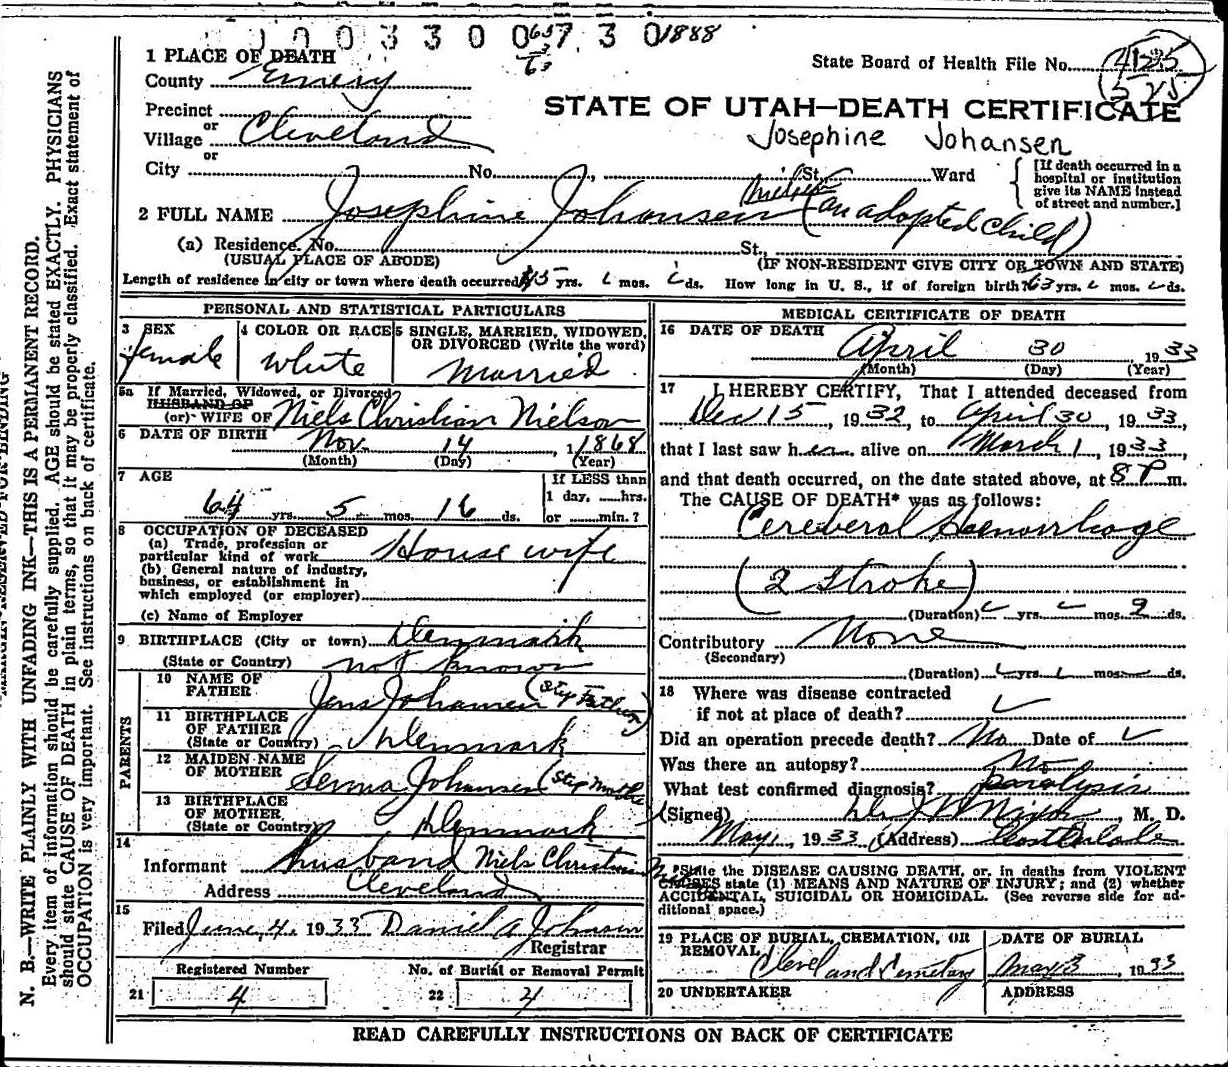 1 0 0 3 3 0 0 7 3 0 1888
1 PLACE OF DEATH
County Emery
State Board of Health File No. 4125
525
STATE OF UTAH—DEATH CERTIFICATE
Precinct
or
Village Cleveland
or
Josephine Johansen
City No. , St. Ward
[If death occurred in a hospital or institution give its NAME instead of street and number.]
2 FULL NAME Josephine Johansen Nielsen (an adopted child)
(a) Residence. No. St.,
(USUAL PLACE OF ABODE) (IF NON-RESIDENT GIVE CITY OR TOWN AND STATE)
Length of residence in city or town where death occurred 45 yrs. mos. ds. How long in U. S., if of foreign birth? 63 yrs. mos. ds.
PERSONAL AND STATISTICAL PARTICULARS
3 SEX
female
4 COLOR OR RACE
White
5 SINGLE, MARRIED, WIDOWED, OR DIVORCED (Write the word)
Married
5a If Married, Widowed, or Divorced
HUSBAND OF
(or) WIFE OF Niels Christian Nielson
6 DATE OF BIRTH Nov. 14, 1868
(Month) (Day) (Year)
7 AGE
64 yrs. 5 mos. 16 ds.
If LESS than
1 day, hrs.
or min.?
8 OCCUPATION OF DECEASED
(a) Trade, profession or
particular kind of work House wife
(b) General nature of industry,
business, or establishment in
which employed (or employer)
(c) Name of Employer
9 BIRTHPLACE (City or town) Denmark
(State or Country) not known
PARENTS
10 NAME OF
FATHER Jens Johansen (Step Father)
11 BIRTHPLACE
OF FATHER
(State or Country) Denmark
12 MAIDEN NAME
OF MOTHER Johansen (Step mother
13 BIRTHPLACE
OF MOTHER
(State or Country) Denmark
14
Informant Husband Niels Christian
Address Cleveland
15
Filed June 4. 1933 Daniel A Johnson
Registrar
Registered Number
21 4
No. of Burial or Removal Permit
22 4
MEDICAL CERTIFICATE OF DEATH
16 DATE OF DEATH
April 30 1933
(Month) (Day) (Year)
17 I HEREBY CERTIFY, That I attended deceased from
Dec 15, 1932, to April 30, 1933,
that I last saw her alive on March 1, 1933,
and that death occurred, on the date stated above, at 8 P m.
The CAUSE OF DEATH* was as follows:
Cereberal Haemorrhage
(2 Stroke)
(Duration) yrs. mos. 2 ds.
Contributory None
(Secondary)
(Duration) yrs. mos. ds.
18 Where was disease contracted
if not at place of death?
Did an operation precede death? No Date of
Was there an autopsy? No
What test confirmed diagnosis? paralysis
(Signed) Nixon, M. D.
May 1, 1933 (Address) Castle Dale
*State the DISEASE CAUSING DEATH, or, in deaths from VIOLENT
CAUSES state (1) MEANS AND NATURE OF INJURY; and (2) whether
ACCIDENTAL, SUICIDAL OR HOMICIDAL. (See reverse side for ad-
ditional space.)
19 PLACE OF BURIAL, CREMATION, OR
REMOVAL Cleveland Cemetary
DATE OF BURIAL
May 3, 1933
20 UNDERTAKER ADDRESS
READ CAREFULLY INSTRUCTIONS ON BACK OF CERTIFICATE
N. B.—WRITE PLAINLY WITH UNFADING INK—THIS IS A PERMANENT RECORD.
Every item of information should be carefully supplied. AGE should be stated EXACTLY. PHYSICIANS
should state CAUSE OF DEATH in plain terms, so that it may be properly classified. Exact statement of
OCCUPATION is very important. See instructions on back of certificate.